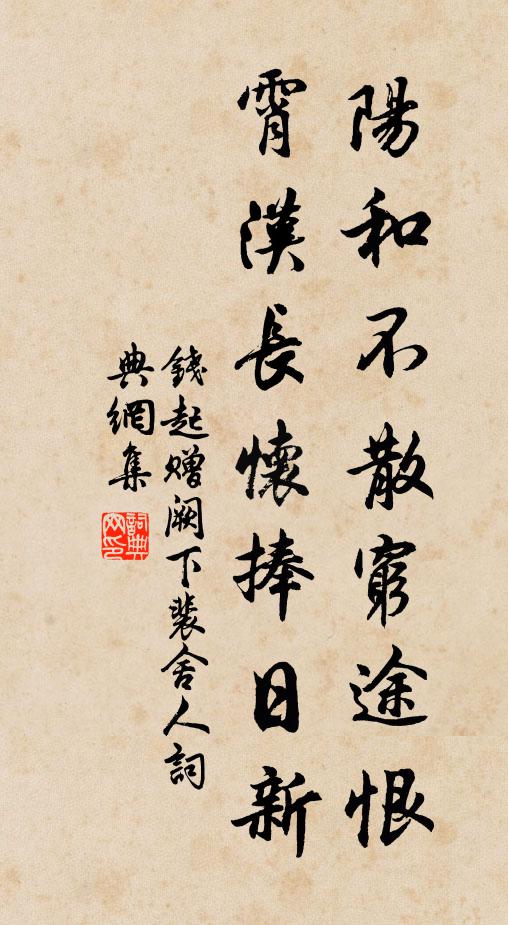 陽和不散窮途恨
霄漢長懷捧日新
錢起贈闕下裴舍人詞
典網集
詞典網印